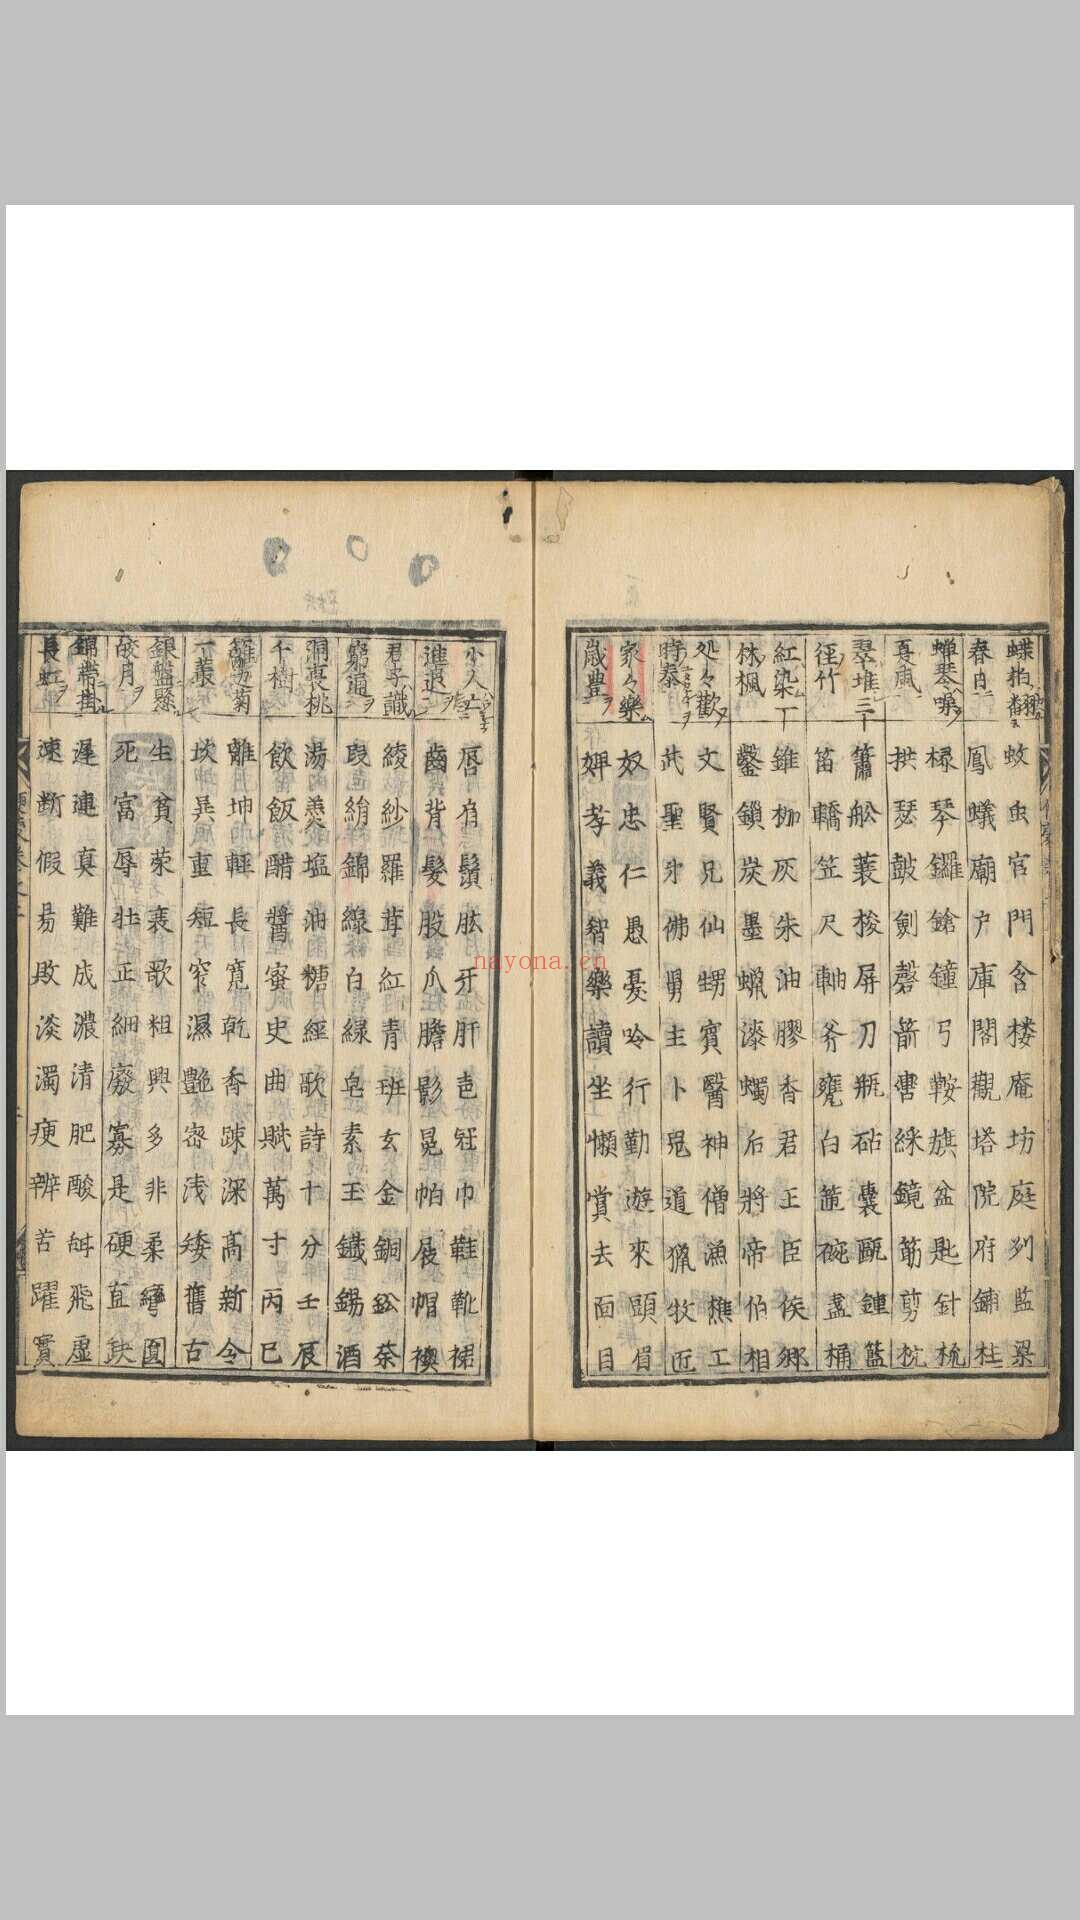 蝶拍翻
春日
蟬琴噪
夏風
翠堆三
徑竹
紅染一
林楓
処々歡
時泰
家々樂
歲豊
蚊虫宮門含楼庵坊庭列監梁
鳳蟻廟戸庫閣觀塔院府鋪柱
琴鑼鎗鐘弓鞍旗盆匙針梳
拱瑟皷劍磬箭綵鏡筯剪枕
簫舩蓑梭屏刀瓶砧囊甌鏈籃
笛轎笠尺軸斧甕臼碗盞桶
錐枷灰朱油膠香君王臣侯郷
鑿鎖炭墨蝋漆蠋后將帝伯相
文賢兄仙甥賓醫神僧漁樵工
武聖佛舅主卜道猟牧匠
奴忠仁愚憂吟行勤遊來頭眉
婢孝義智樂讀坐懶賞去面目
小人
進退
君子識
窮通
洞裏桃
千樹
籬邊菊
一叢
銀盤懸
皎月
錦帶掛
長虹
唇肩鬚肱牙肝巾鞋靴裙
齒背髮股爪膽影冕帕屐帽襖
綾紗羅茸紅青斑玄金銅鈆奈
段綃錦綿白緑皂素玉鐵錫酒
湯羹塩油糖經歌詩十分壬辰
飲飯醋醬蜜史曲賦萬寸丙巳
離坤輕長寛乾香踈深高新今
坎巽重短窄濕艶密浅矮舊古
生貧荣衰歌粗興多非柔彎圓
死富辱壯正細廢寡是硬直缺
遅連真難成濃清肥酸甜飛虛
速断假易敗淡濁瘦辨苦躍實
nayona.cn